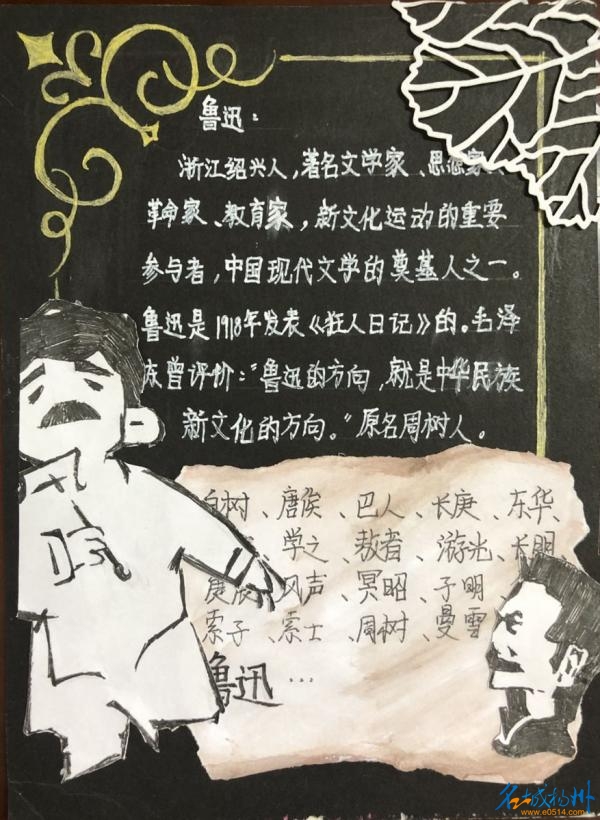 鲁迅：
浙江绍兴人，著名文学家、思想家、
革命家、教育家，新文化运动的重要
参与者，中国现代文学的奠基人之一。
鲁迅是1918年发表《狂人日记》的。毛泽
东曾评价："鲁迅的方向，就是中华民族
新文化的方向。"原名周树人。
白树、唐俟、巴人、长庚、东华、
、学之、敖者、游光、长明
庚辰、风声、冥昭、子明、
索子、索士、周树、曼雪
鲁迅…
名城扬州
www.e0514.com